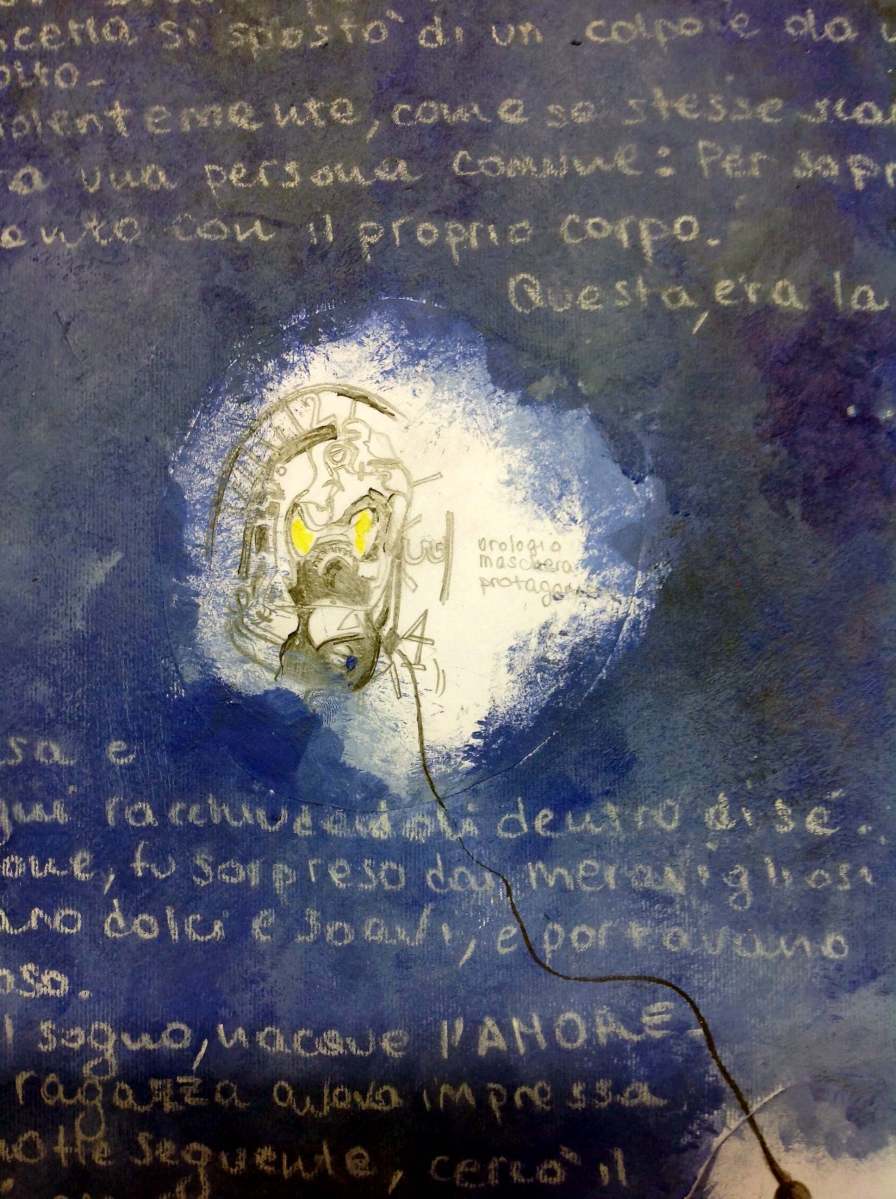 si spostò di un colpo e da
violentemente, come se stesse
una persona comune: Per
con il proprio corpo.
Questa, era la
12
orologio
maschera
4
sa e
qui racchiudendoli dentro di sé.
fu sorpreso dai meravigliosi
dolci e soavi, e portavano
oso.
sogno, nacque l'AMORE
ragazza aveva impressa
notte seguente, cercò il